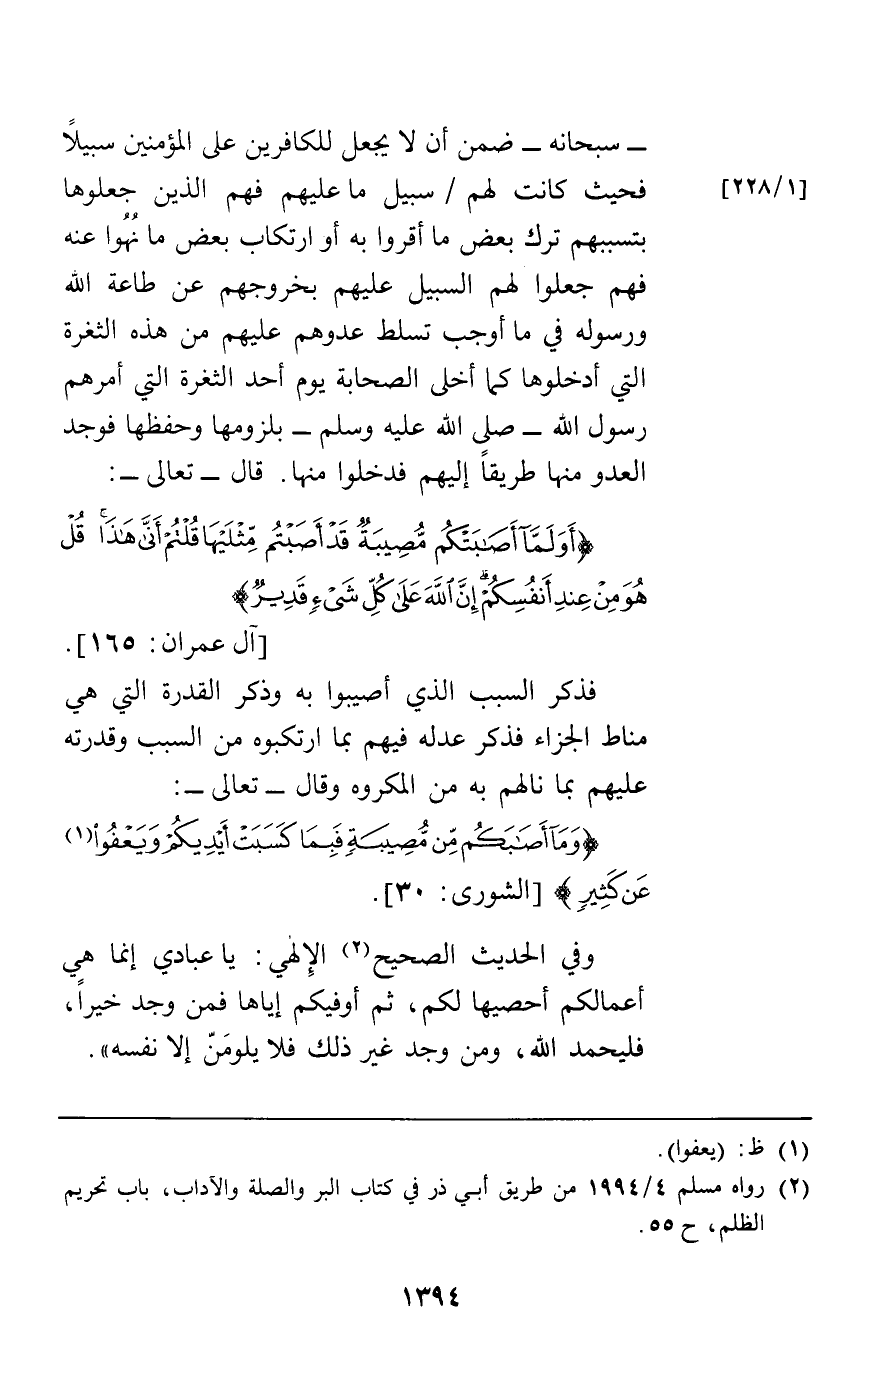 ـ سبحانه ـ ضمن أن لا يجعل للكافرين على المؤمنين سبيلاً
[٢٢٨/١] فحيث كانت لهم / سبيل ما عليهم فهم الذين جعلوها
بتسببهم ترك بعض ما أقروا به أو ارتكاب بعض ما نُهُوا عنه
فهم جعلوا لهم السبيل عليهم بخروجهم عن طاعة الله
ورسوله في ما أوجب تسلط عدوهم عليهم من هذه الثغرة
التي أدخلوها كما أخلى الصحابة يوم أحد الثغرة التي أمرهم
رسول الله ـ صلى الله عليه وسلم ـ بلزومها وحفظها فوجد
العدو منها طريقاً إليهم فدخلوا منها. قال ـ تعالى ـ:
﴿أَوَلَمَّآ أَصَٰبَتۡكُم مُّصِيبَةٞ قَدۡ أَصَبۡتُم مِّثۡلَيۡهَا قُلۡتُمۡ أَنَّىٰ هَٰذَاۖ قُلۡ
هُوَ مِنۡ عِندِ أَنفُسِكُمۡۗ إِنَّ ٱللَّهَ عَلَىٰ كُلِّ شَيۡءٖ قَدِيرٞ﴾
[آل عمران: ١٦٥].
فذكر السبب الذي أصيبوا به وذكر القدرة التي هي
مناط الجزاء فذكر عدله فيهم بما ارتكبوه من السبب وقدرته
عليهم بما نالهم به من المكروه وقال ـ تعالى ـ:
﴿وَمَآ أَصَٰبَكُم مِّن مُّصِيبَةٖ فَبِمَا كَسَبَتۡ أَيۡدِيكُمۡ وَيَعۡفُواْ(١)
عَن كَثِيرٖ﴾ [الشورى: ٣٠].
وفي الحديث الصحيح(٢) الإلٰهي: يا عبادي إنما هي
أعمالكم أحصيها لكم، ثم أوفيكم إياها فمن وجد خيراً،
فليحمد الله، ومن وجد غير ذلك فلا يلومَنّ إلا نفسه».
(١) ظ: (يعفوا).
(٢) رواه مسلم ١٩٩٤/٤ من طريق أبـي ذر في كتاب البر والصلة والآداب، باب تحريم
الظلم، ح ٥٥.
١٣٩٤